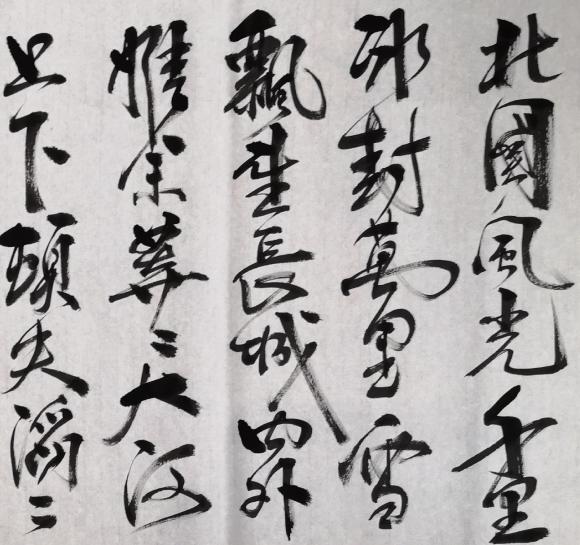 北國風光千里
冰封萬里雪
飄望長城內外
惟余莽〻大河
上下頓失滔〻